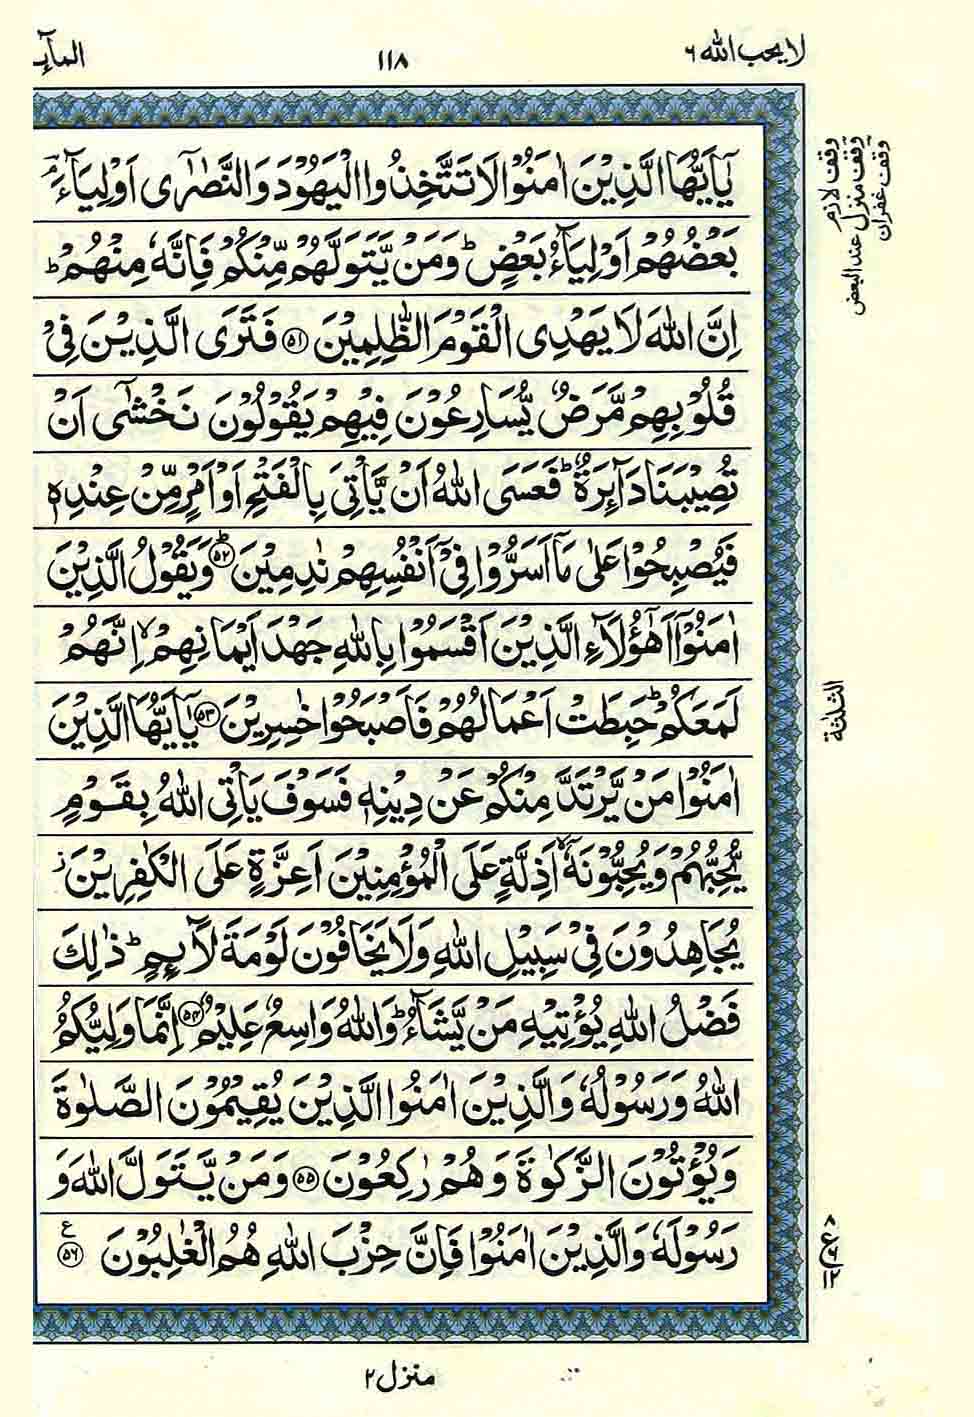 لا یحب الله ۶
۱۱۸
المآىٕ
يٰۤاَيُّهَا الَّذِيْنَ اٰمَنُوْا لَا تَتَّخِذُوا الْيَهُوْدَ وَالنَّصٰرٰٓى اَوْلِيَآءَ ۘؔ
بَعْضُهُمْ اَوْلِيَآءُ بَعْضٍ ؕ وَمَنْ يَّتَوَلَّهُمْ مِّنْكُمْ فَاِنَّهٗ مِنْهُمْ ؕ
اِنَّ اللّٰهَ لَا يَهْدِى الْقَوْمَ الظّٰلِمِيْنَ ۝۵۱ فَتَرَى الَّذِيْنَ فِىْ
قُلُوْبِهِمْ مَّرَضٌ يُّسَارِعُوْنَ فِيْهِمْ يَقُوْلُوْنَ نَخْشٰٓى اَنْ
تُصِيْبَنَا دَآئِرَةٌ ؕ فَعَسَى اللّٰهُ اَنْ يَّاْتِىَ بِالْفَتْحِ اَوْ اَمْرٍ مِّنْ عِنْدِهٖ
فَيُصْبِحُوْا عَلٰى مَاۤ اَسَرُّوْا فِىْۤ اَنْفُسِهِمْ نٰدِمِيْنَ ؕ۝۵۲ وَيَقُوْلُ الَّذِيْنَ
اٰمَنُوْۤا اَهٰٓؤُلَآءِ الَّذِيْنَ اَقْسَمُوْا بِاللّٰهِ جَهْدَ اَيْمَانِهِمْ ۙ اِنَّهُمْ
لَمَعَكُمْ ؕ حَبِطَتْ اَعْمَالُهُمْ فَاَصْبَحُوْا خٰسِرِيْنَ ۝۵۳ يٰۤاَيُّهَا الَّذِيْنَ
اٰمَنُوْا مَنْ يَّرْتَدَّ مِنْكُمْ عَنْ دِيْنِهٖ فَسَوْفَ يَاْتِى اللّٰهُ بِقَوْمٍ
يُّحِبُّهُمْ وَيُحِبُّوْنَهٗۤ ۙ اَذِلَّةٍ عَلَى الْمُؤْمِنِيْنَ اَعِزَّةٍ عَلَى الْكٰفِرِيْنَ ؗ
يُجَاهِدُوْنَ فِىْ سَبِيْلِ اللّٰهِ وَلَا يَخَافُوْنَ لَوْمَةَ لَآئِمٍ ؕ ذٰلِكَ
فَضْلُ اللّٰهِ يُؤْتِيْهِ مَنْ يَّشَآءُ ؕ وَاللّٰهُ وَاسِعٌ عَلِيْمٌ ۝۵۴ اِنَّمَا وَلِيُّكُمُ
اللّٰهُ وَرَسُوْلُهٗ وَالَّذِيْنَ اٰمَنُوا الَّذِيْنَ يُقِيْمُوْنَ الصَّلٰوةَ
وَيُؤْتُوْنَ الزَّكٰوةَ وَهُمْ رٰكِعُوْنَ ۝۵۵ وَمَنْ يَّتَوَلَّ اللّٰهَ وَ
رَسُوْلَهٗ وَالَّذِيْنَ اٰمَنُوْا فَاِنَّ حِزْبَ اللّٰهِ هُمُ الْغٰلِبُوْنَ ۝۵۶ ع
وقف لازم
وقف منزل عند البعض
وقف غفران
الثلثة
۸
ع ۶
۱۲
منزل ۲